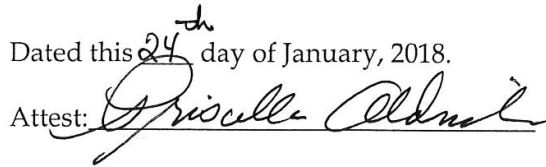 Dated this 24th day of January, 2018.
Attest: Priscilla